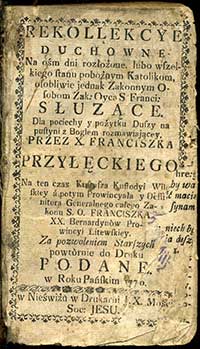 REKOLLEKCYE
DUCHOWNE.
Na ośm dni rozłożone, lubo wszel-
kiego stanu pobożnym Katolikom,
osobliwie jednak Zakonnym O-
sobom Zak: Oyca S Franci:
SŁUZĄCE.
Dla pociechy y pożytku Duszy na
pustyni z Bogiem rozmawiaiącey,
PRZEZ X. FRANCISZKA
PRZYŁĘCKIEGO
Na ten czas Kustosza Kustodyi
skiey a potym Prowincyała y Defi-
nitora Generalnego całego Za-
konu S. O. FRANCISZKA
XX. Bernardynow Pro-
wincyi Litewskiey.
Za pozwoleniem Starszych
powtornie do Druku
PODANE.
w Roku Pańskim
w Nieświżu w Drukarni J. X. Mości
Soc: JESU.